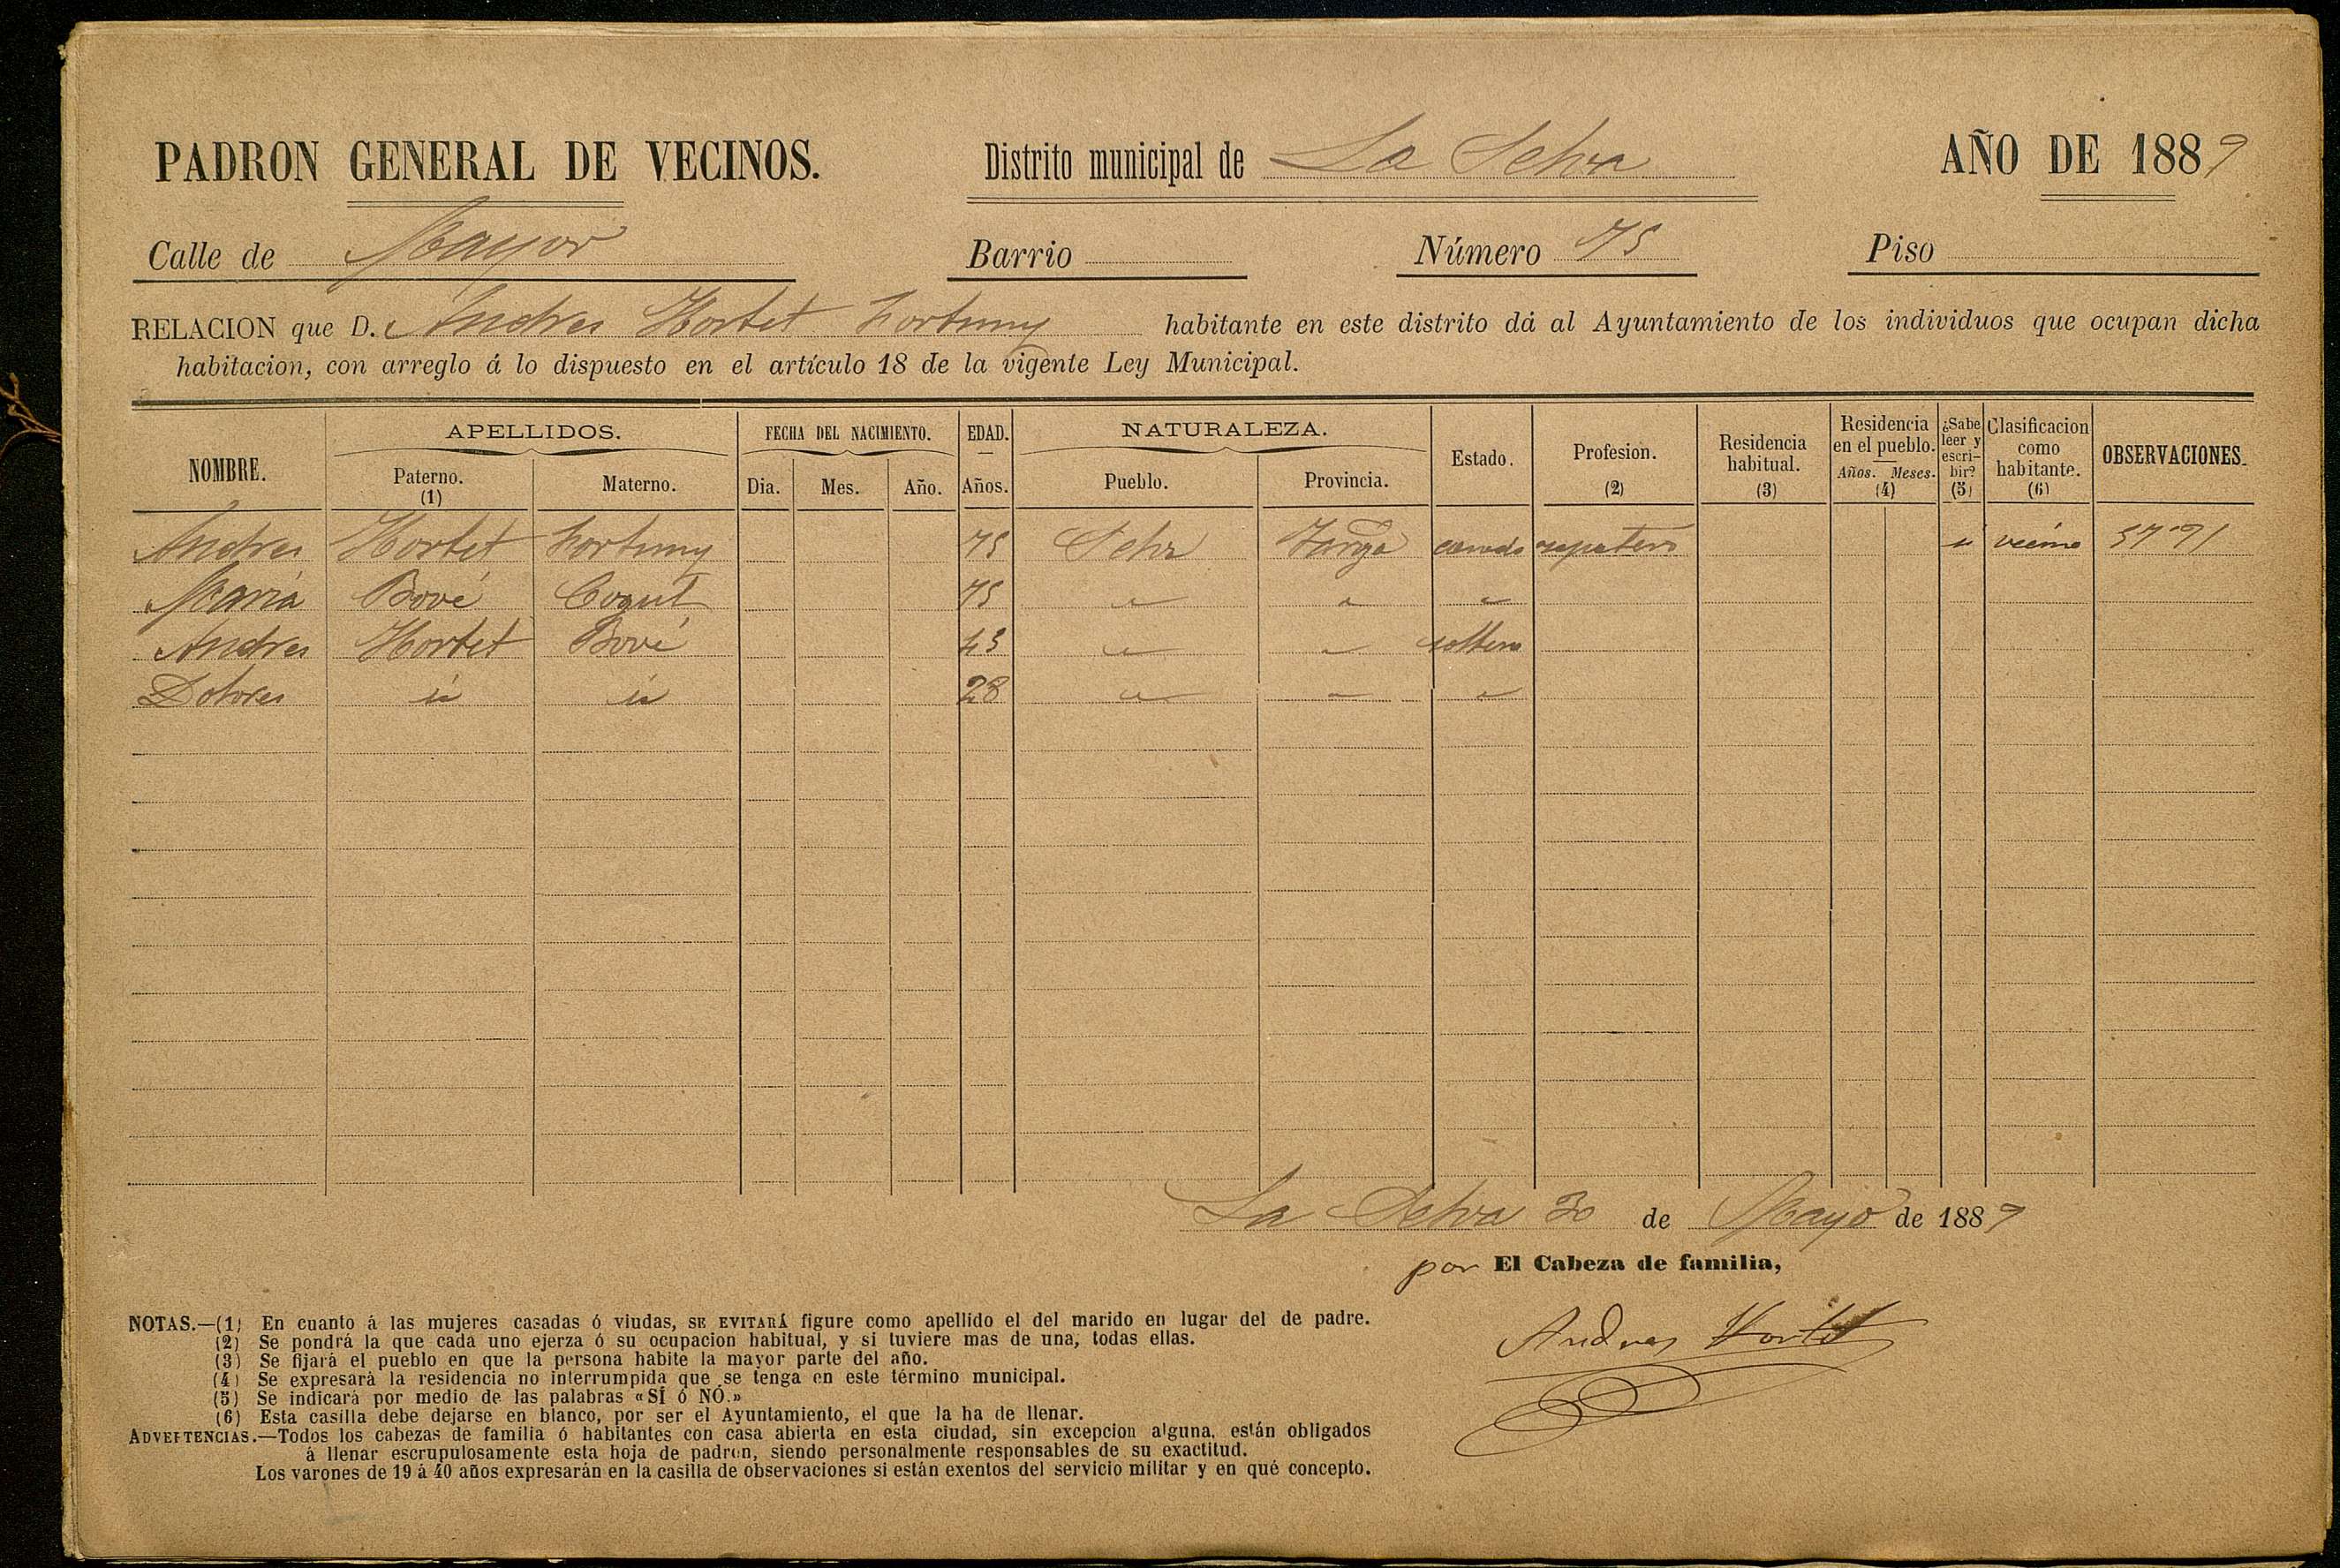 PADRON GENERAL DE VECINOS. Distrito municipal de La Selva AÑO DE 1889
Calle de Mayor Barrio Número 75 Piso
RELACION que D. Andres Hortet Fortuny habitante en este distrito dá al Ayuntamiento de los individuos que ocupan dicha
habitacion, con arreglo á lo dispuesto en el artículo 18 de la vigente Ley Municipal.
NOMBRE. APELLIDOS. Paterno. (1) Materno. FECHA DEL NACIMIENTO. Dia. Mes. Año. EDAD. — Años. NATURALEZA. Pueblo. Provincia. Estado. Profesion. (2) Residencia habitual. (3) Residencia en el pueblo. Años. Meses. (4) ¿Sabe leer y escribir? (5) Clasificacion como habitante. (6) OBSERVACIONES.
Andres Hortet Fortuny 75 Selva casado zapatero vecino
Maria Bové 75 " " "
Andres Hortet Bové 43 " " soltero
Dolores id id 28 " " "
La Selva 30 de Mayo de 1889
por El Cabeza de familia,
Andres Hortet
NOTAS.—(1) En cuanto á las mujeres casadas ó viudas, SE EVITARÁ figure como apellido el del marido en lugar del de padre.
(2) Se pondrá la que cada uno ejerza ó su ocupacion habitual, y si tuviere mas de una, todas ellas.
(3) Se fijará el pueblo en que la persona habite la mayor parte del año.
(4) Se expresará la residencia no interrumpida que se tenga en este término municipal.
(5) Se indicará por medio de las palabras «SÍ ó NÓ.»
(6) Esta casilla debe dejarse en blanco, por ser el Ayuntamiento, el que la ha de llenar.
ADVERTENCIAS.—Todos los cabezas de familia ó habitantes con casa abierta en esta ciudad, sin excepcion alguna, están obligados
á llenar escrupulosamente esta hoja de padron, siendo personalmente responsables de su exactitud.
Los varones de 19 á 40 años expresarán en la casilla de observaciones si están exentos del servicio militar y en qué concepto.